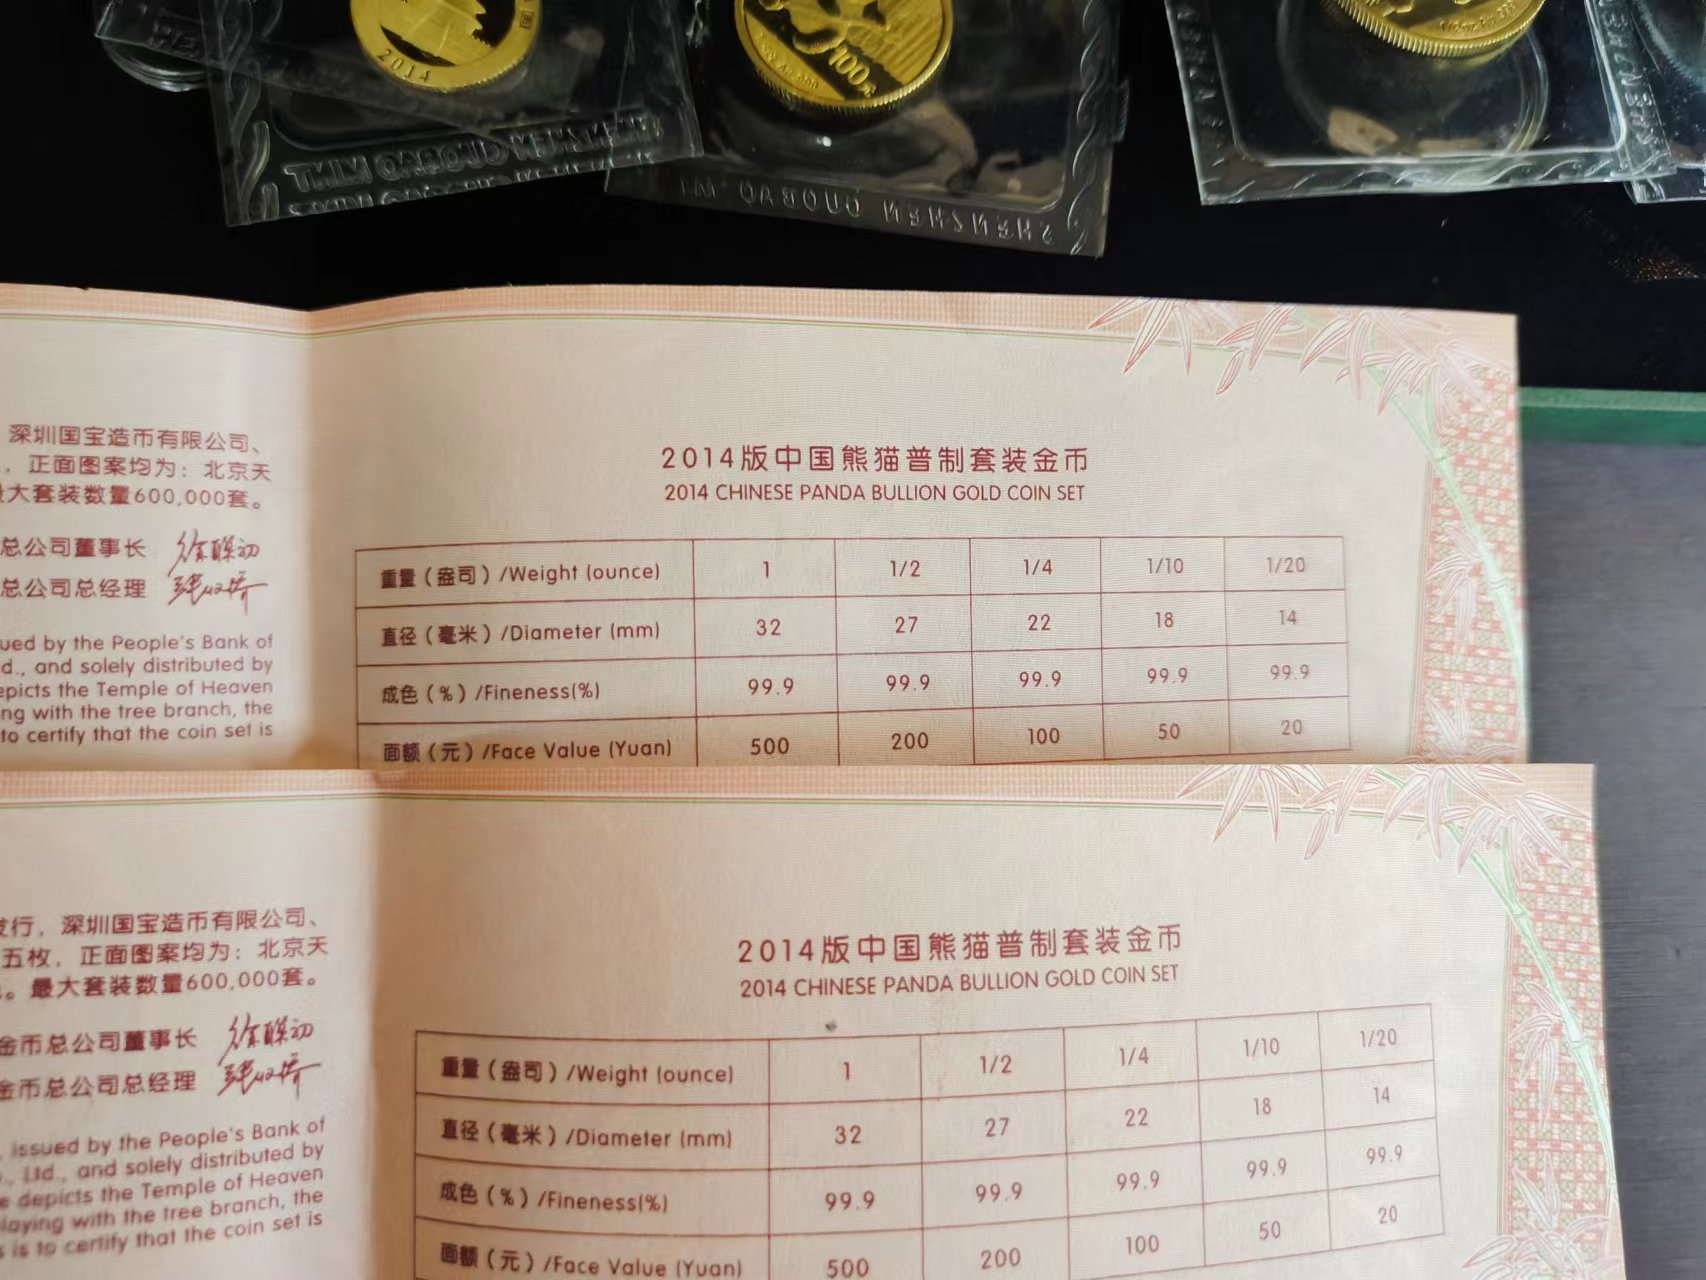 2014
100元
SHENZHEN GUOBAO MINT
SHENZHEN GUOBAO
深圳国宝造币有限公司、
，正面图案均为：北京天
最大套装数量600,000套。
总公司董事长
总公司总经理
ued by the People's Bank of
d., and solely distributed by
epicts the Temple of Heaven
ng with the tree branch, the
to certify that the coin set is
2014版中国熊猫普制套装金币
2014 CHINESE PANDA BULLION GOLD COIN SET
重量（盎司）/Weight (ounce) 1 1/2 1/4 1/10 1/20
直径（毫米）/Diameter (mm) 32 27 22 18 14
成色（%）/Fineness(%) 99.9 99.9 99.9 99.9 99.9
面额（元）/Face Value (Yuan) 500 200 100 50 20
发行，深圳国宝造币有限公司、
五枚，正面图案均为：北京天
。最大套装数量600,000套。
金币总公司董事长
金币总公司总经理
, issued by the People's Bank of
., Ltd., and solely distributed by
e depicts the Temple of Heaven
laying with the tree branch, the
s is to certify that the coin set is
2014版中国熊猫普制套装金币
2014 CHINESE PANDA BULLION GOLD COIN SET
重量（盎司）/Weight (ounce) 1 1/2 1/4 1/10 1/20
直径（毫米）/Diameter (mm) 32 27 22 18 14
成色（%）/Fineness(%) 99.9 99.9 99.9 99.9 99.9
面额（元）/Face Value (Yuan) 500 200 100 50 20